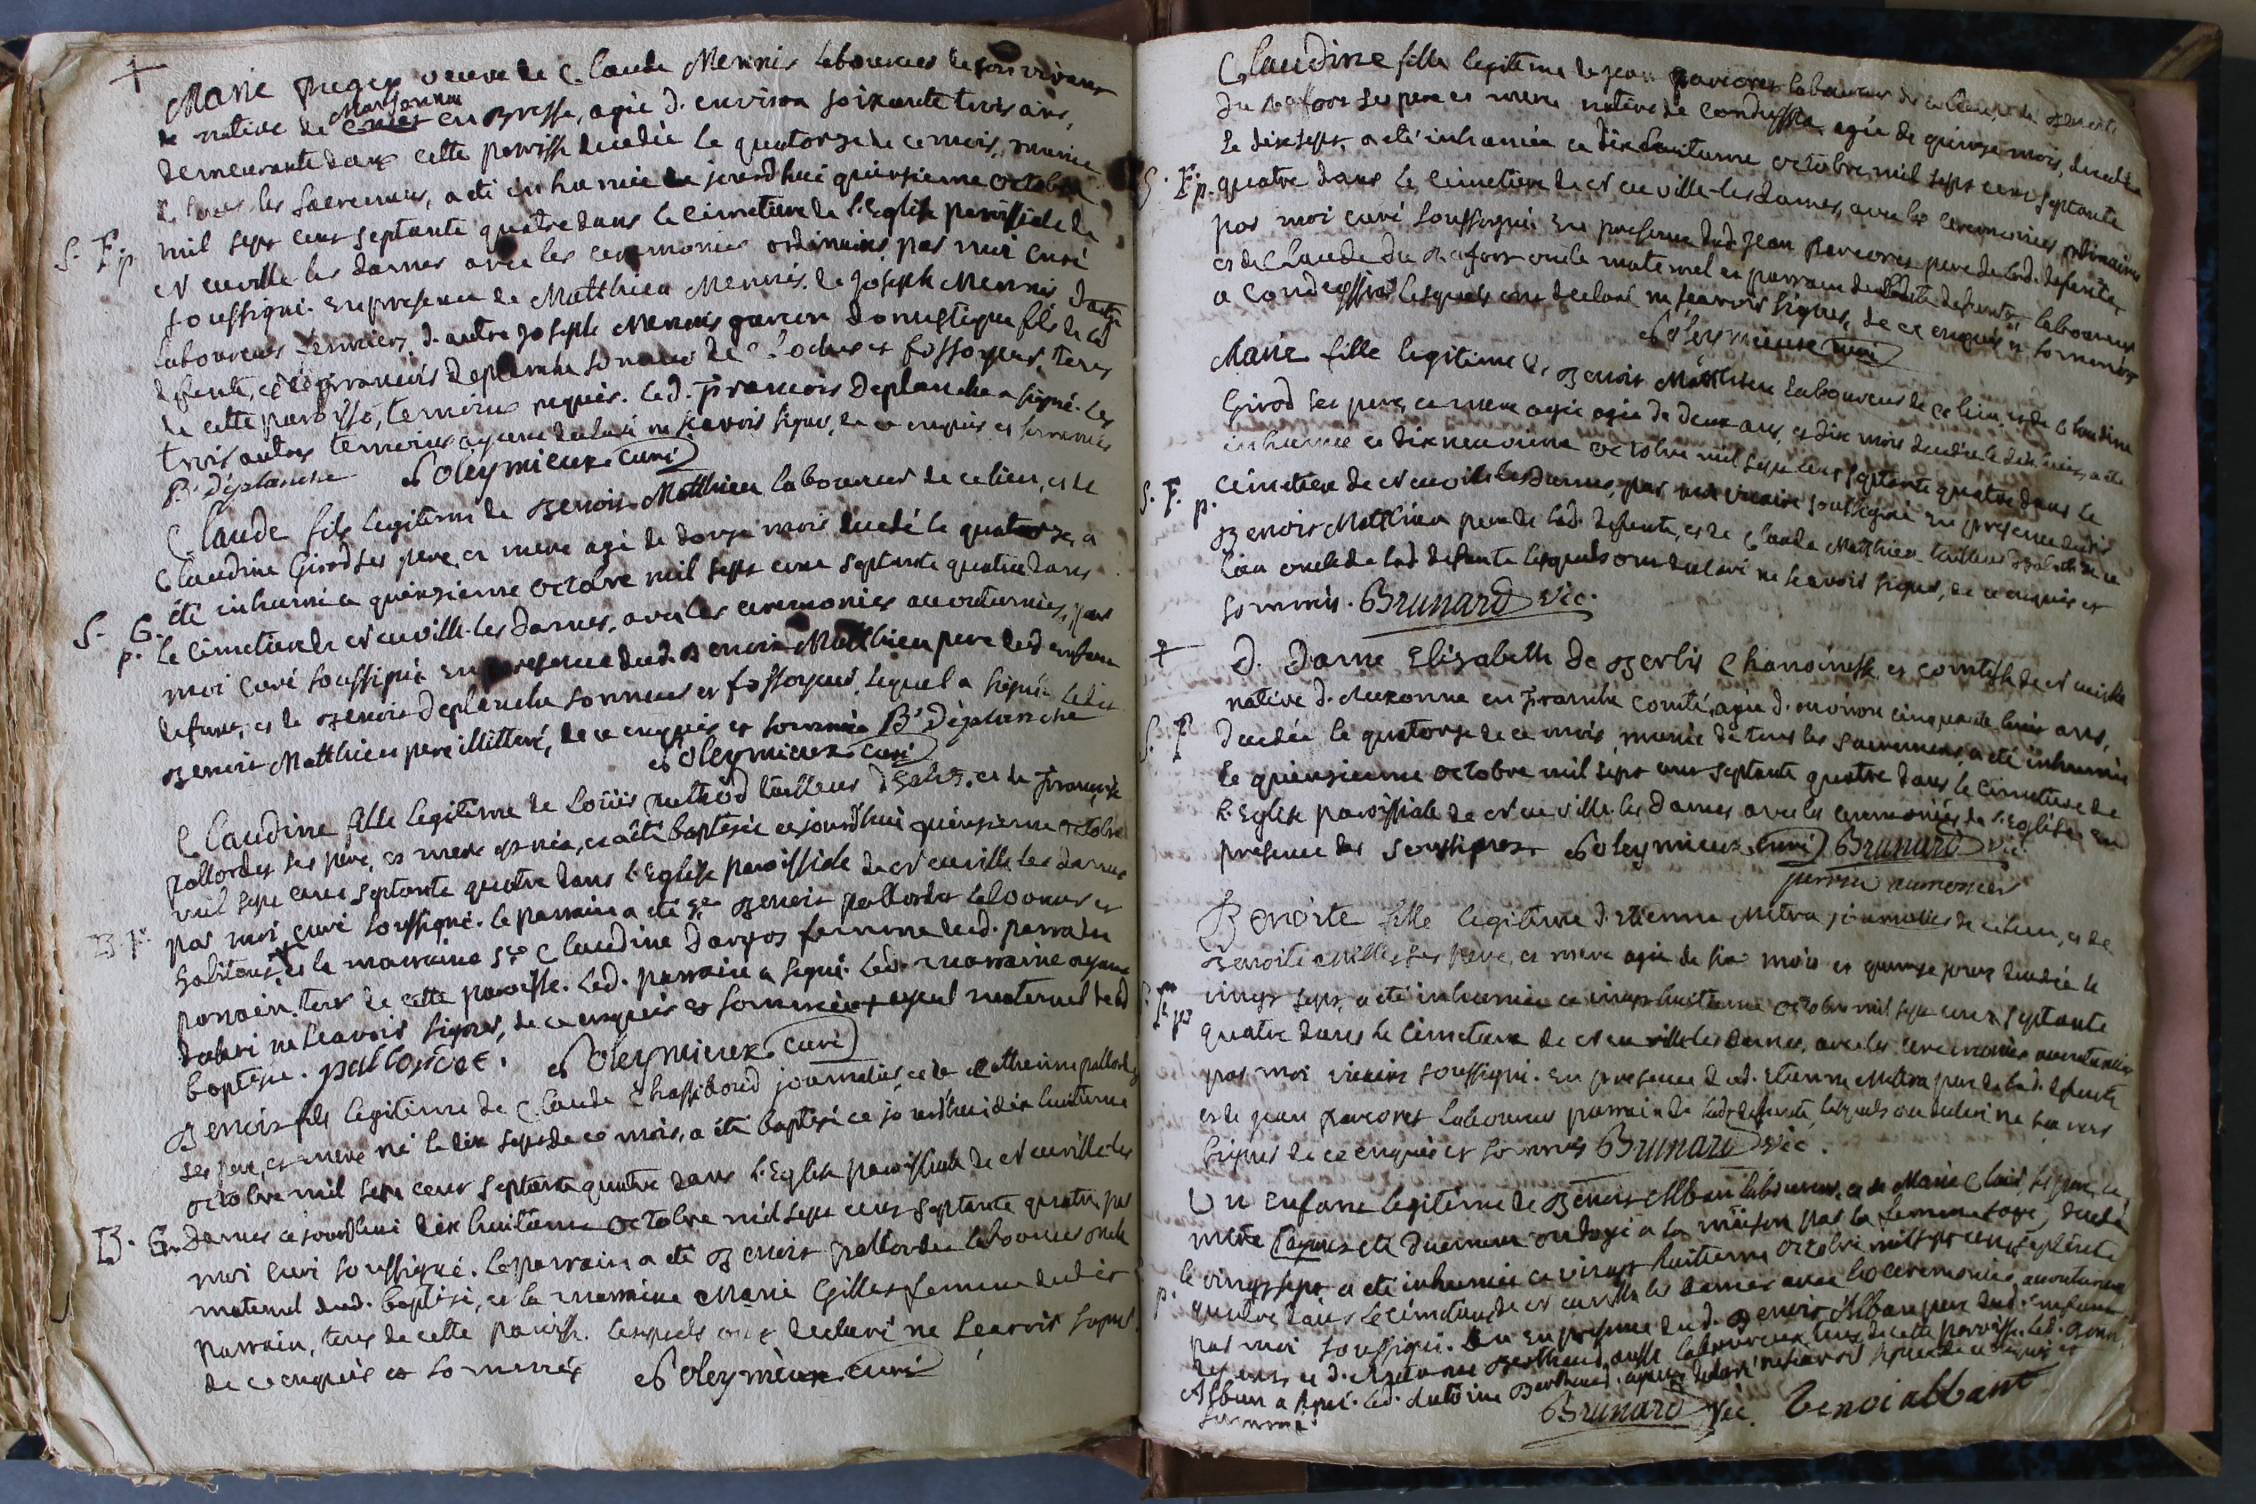 Marie veuve de Claude Mennis laboureur de son vivant
& native de Marsonna en Bresse, agée d'environ soixante trois ans,
demeurante dans cette paroisse decedée le quatorze de ce mois, munie
de tous les sacremens, a été inhumée ce jourdhui quinzieme octobre
S. F. p. mil sept cent septante quatre dans le cimetiere de l'Eglise paroissiale de
neuville les dames avec les ceremonies ordinaires par moi curé
soussigné. En presence de Matthieu Mennis, de Joseph Mennis
laboureurs d'autre Joseph Mennis garcon domestique fils de lad
defunte, et de francois deplanche sonneur de cloches et fossoyeur, tous
de cette paroisse, temoins requis. Led. francois Deplanche a signé. Les
trois autres temoins ayant declaré ne scavoir signer, de ce enquis et sommés
f. déplanche Soleymieux curé
Claude fils legitime de Benoit Matthieu laboureur de ce lieu, et de
Claudine Girod ses pere, et mere agé de douze mois decedé le quatorze, a
été inhumé ce quinzieme octobre mil sept cent septante quatre dans
S. G. p. le cimetiere de neuville-les dames, avec les ceremonies accoutumées, par
moi curé soussigné en presence dud. Benoit Matthieu pere dud enfant
defunt, et de Benoit deplanche sonneur et fossoyeur, lequel a signé ledit
Benoit Matthieu pere illitteré, de ce enquis et sommé B. déplanche
Soleymieux curé
Claudine fille legitime de Loüis tailleur d'habits, et de Françoise
pallordet ses pere, et mere est née, et a été baptisée ce jourdhui quinzieme octobre
mil sept cent septante quatre dans l'Eglise paroissiale de neuville les dames
B. F. par moi curé soussigné. le parrain a été Sr Benoit pallordet laboureur et
habitant, et la marraine Claudine femme dud. parrain
parrain, tous de cette paroisse. Led. parrain a signé. Lad. marraine ayant
declaré ne scavoir signer, de ce enquis et sommée + ayeul maternel de lad
baptisée. pallordet. Soleymieux curé
Benoit fils legitime de Claude Chassibond journalier, et de Catherine pallordet
ses pere, et mere né le dix sept de ce mois, a été baptisé ce jourdhui dix huitieme
octobre mil sept cent septante quatre dans l'Eglise paroissiale de neuville les
B. G. Dames ce jourdhui dix huitieme octobre mil sept cent septante quatre par
moi curé soussigné. Le parrain a été Benoit pallordet laboureur oncle
maternel dud. baptisé, et la marraine Marie Gilles femme dudit
parrain, tous de cette paroisse. lesquels ont declaré ne scavoir signer
de ce enquis et sommés Soleymieux curé
Claudine fille legitime de Jean parcoret laboureur de ce lieu, et de Benoite
du Rafour ses pere et mere native de Condeissia agée de quinze mois, decedée
le dix sept, a été inhumée ce dix huitieme octobre mil sept cent septante
S. F. p. quatre dans le cimetiere de neuville-les dames, avec les ceremonies ordinaires
par moi curé soussigné en presence dud Jean parcoret pere de lad. defunte
et de Claude du Rafour oncle maternel et parrain de ladite defunte laboureur
a Condeissia lesquels ont declaré ne scavoir signer, de ce enquis et sommés
Soleymieux curé
Marie fille legitime de Benoit Matthieu laboureur de ce lieu, et de Claudine
Girod ses pere, et mere agée agée de deux ans, et dix mois decedée le dix huit, a été
inhumée ce dix neuvieme octobre mil sept cent septante quatre dans le
S. F. p. cimetiere de neuville les Dames, par moi vicaire soussigné en presence dudit
Benoit Matthieu pere de lad. defunte, et de Claude Matthieu tailleur d'habits de ce
lieu oncle de lad defunte lesquels ont declaré ne scavoir signer, de ce enquis et
sommés. Brunard Vic.
D. Dame Elizabeth de Berbis Chanoinesse et comtesse de neuville
native d'Auxonne en franche comté, agée d'environ cinquante huit ans,
S. F decedée le quatorze de ce mois, munie de tous les sacremens, a été inhumée
le quinzieme octobre mil sept cent septante quatre dans le cimetiere de
l'Eglise paroissiale de neuville les dames avec les ceremonies de l'Eglise en
presence des soussignes Soleymieux curé Brunard vic
perrin aumonier
Benoite fille legitime d'Etienne Mitra journalier de ce lieu, et de
Benoite ses pere, et mere agée de six mois et quinze jours decedée le
vingt sept, a été inhumée ce vingt huitieme octobre mil sept cent septante
F p quatre dans le cimetiere de neuville les dames, avec les ceremonies accoutumées
par moi vicaire soussigné. En presence dud. Etienne Mitra pere de lad. defunte
et de jean parcoret laboureur parrain de lad defunte, lesquels ont declaré ne scavoir
signer de ce enquis et sommés Brunard Vic.
Un enfant legitime de Benoit Alban laboureur, et de Marie ses pere, et
mere ondoyé a la maison par la femme sage, decedé
le vingt sept a été inhumé ce vingt huitieme octobre mil sept cent septante
p. quatre dans le cimetiere de neuville les dames avec les ceremonies accoutumées
par moi soussigné. En presence dud. Benoit Alban pere dud. enfant
defunt, et d'Antoine Berthaud aussi laboureur tous de cette paroisse. led. Benoit
Alban a signé. led. Antoine Berthaud ayant declaré ne scavoir signer de ce enquis et
sommé. Brunard Vic. benoi albant